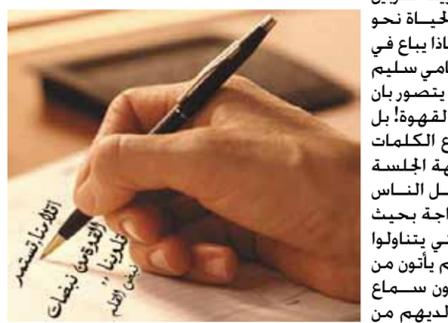 لحيــاة نحو
اذا يباع في
امي سليم
يتصور بان
لقهوة! بل
ع الكلمات
هة الجلسة
ـل النــاس
اجة بحيث
ي يتناولوا
م يأتون من
ون ســماع
لديهم من
اقلامنا تستمر
القوة من نبضات
قلوبنا ,,
نبض القلم